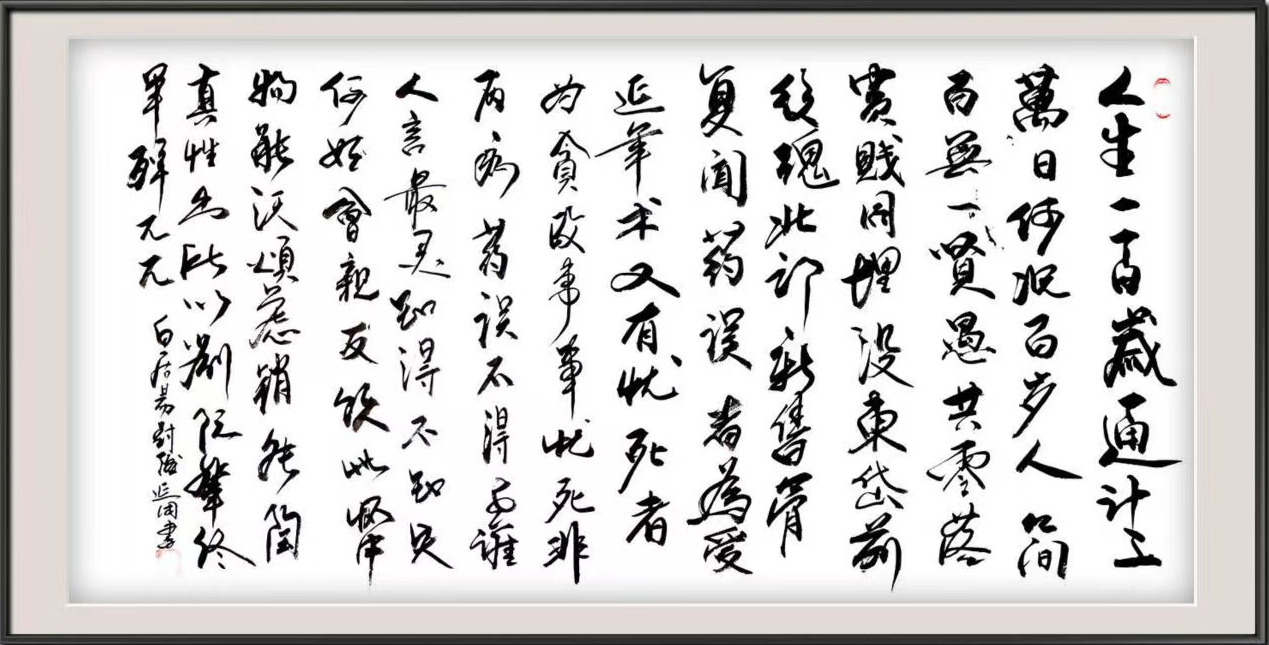 人生一百歲通計三
萬日何况百岁人人间
百無一賢愚共零落
貴賤同埋没東岱前
後魂北邙新舊骨
复闻药误者為愛
延年术又有忧死者
为貪政事忧死非
因病药误不得老誰
人言最灵知得不知失
何如會親友饮此杯中
物能沃煩慮銷能陶
真性出所以劉阮輩终
年醉兀兀
白居易對酒 延国書